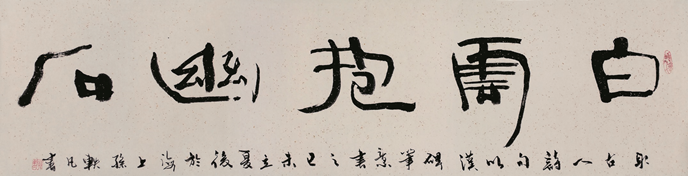 白雲抱幽石
取古人詩句以漢碑筆意書之己未立夏後於海上孫軼凡書